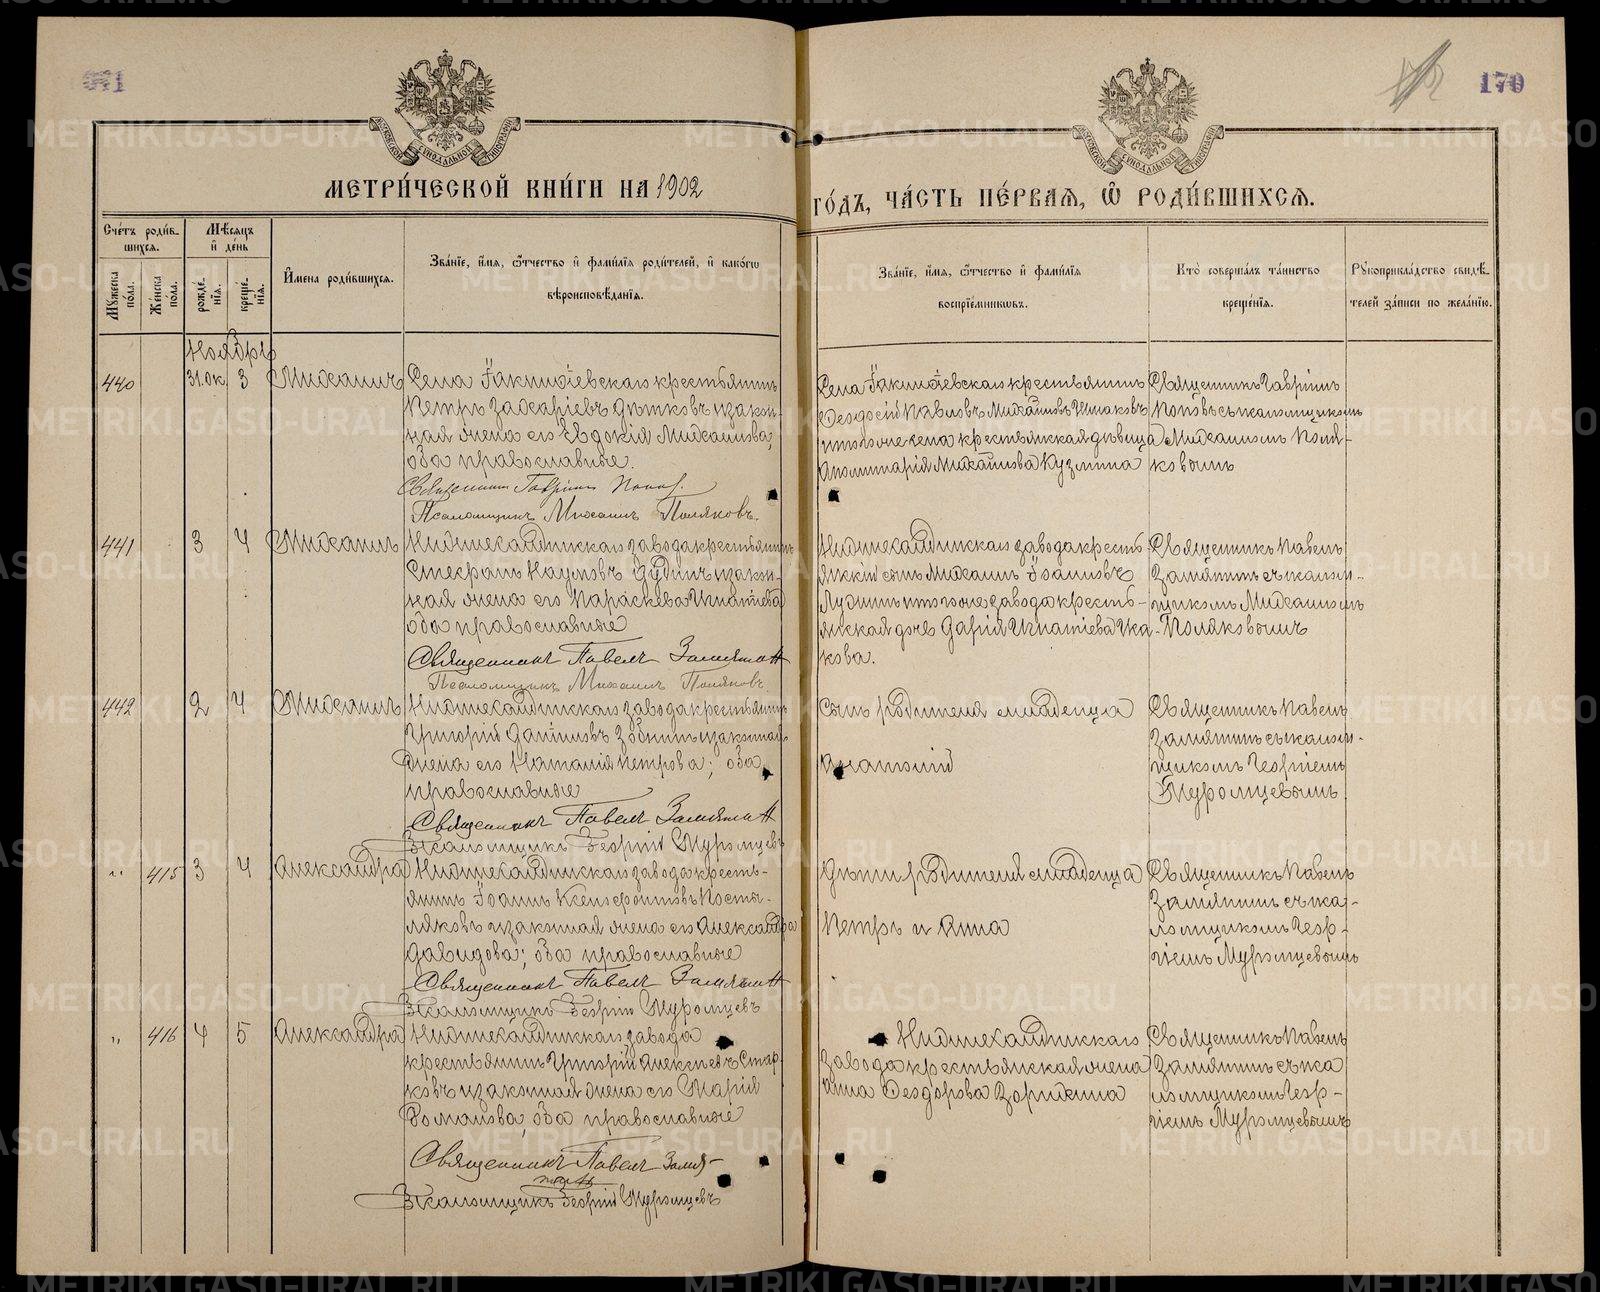 170
МЕТРИ́ЧЕСКОЙ КНИ́ГИ НА 1902
ГО́ДЪ, ЧА́СТЬ ПЕ́РВАЯ, Ѡ҆ РОДИ́ВШИХСЯ.
Сче́тъ роди́в-
шихся.
Мꙋ́жеска по́ла.
Же́нска по́ла.
Мѣ́сяцъ
и҆ де́нь
рожде́-
нїя.
креще́-
нїя.
И҆мена роди́вшихся.
Зва́нїе, и҆́мя, ѻ҆́тчество и҆ фами́лїя роди́телей, и҆ како́гѡ
вѣроисповѣ́данїя.
Зва́нїе, и҆́мя, ѻ҆́тчество и҆ фами́лїя
воспрїе́мникѡвъ.
Кто̀ соверша́лъ та́инство
креще́нїя.
Рꙋкоприкла́дство свидѣ́-
телей за́писи по жела́нїю.
Ноябрь
440
31.Ок. 3
Михаилъ
Села крестьянинъ
Петръ Захаріевъ и закон-
ная жена его Евдокія Михаилова,
оба православные.
Священникъ Гавріилъ Поповъ.
Псаломщикъ Михаилъ Поляковъ.
Села крестьянинъ
Ѳеодосій Павловъ
того же села крестьянская дѣвица
Аполлинарія Михаилова Кузмина
Священникъ Гавріилъ
Поповъ съ псаломщикомъ
Михаиломъ Поля-
ковымъ
441
3 4
Михаилъ
завода крестьянинъ
Стефанъ Наумовъ и закон-
ная жена его Параскева Игнатіева
оба православные
Священникъ Павелъ Замятин
Псаломщикъ Михаилъ Поляковъ.
завода кресть-
янскій сынъ Михаилъ Іоанновъ
и того же завода кресть-
янская дочь Дарія Игнатіева
кова.
Священникъ Павелъ
Замятинъ съ псалом-
щикомъ Михаиломъ
Поляковымъ
442
2 4
Михаилъ
завода крестьянинъ
Григорій Даніиловъ и законная
жена его Наталія Петрова; оба
православные
Священникъ Павелъ Замятин
Псаломщикъ Георгій Муромцевъ
Сынъ родителя младенца
Анатолій
Священникъ Павелъ
Замятинъ съ псалом-
щикомъ Георгіемъ
Муромцевымъ
„ 415 3 4
Александра
завода кресть-
янинъ Іоаннъ Ксенофонтовъ Посты-
ляковъ и законная жена его Александра
Давидова; оба православные
Священникъ Павелъ Замятин
Псаломщикъ Георгій Муромцевъ
Дѣти родителя младенца
Петръ и Анна
Священникъ Павелъ
Замятинъ съ пса-
ломщикомъ Геор-
гіемъ Муромцевымъ
„ 416 4 5
Александра
завода
крестьянинъ Григорій Алексѣевъ Стар-
ковъ и законная жена его Марія
Романова, оба православные
Священникъ Павелъ Замя-
тин
Псаломщикъ Георгій Муромцевъ
завода крестьянская жена
Анна Ѳеодорова Зорихина
Священникъ Павелъ
Замятинъ съ пса
ломщикомъ Геор-
гіемъ Муромцевымъ
METRIKI.GASO-URAL.RU